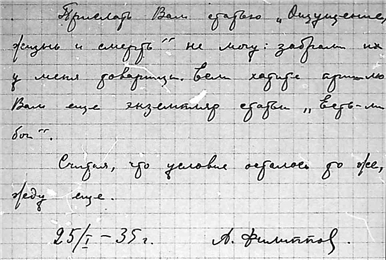 Прислать Вам статью „Ощущение,
жизнь и смерть“ не могу: забрали их
у меня товарищи. Если хотите пришлю
Вам еще экземпляр статьи „Есть-ли
бог“.
Считая, что условие осталось то же,
жду еще.
25/I – 35 г. А. Филиппов.